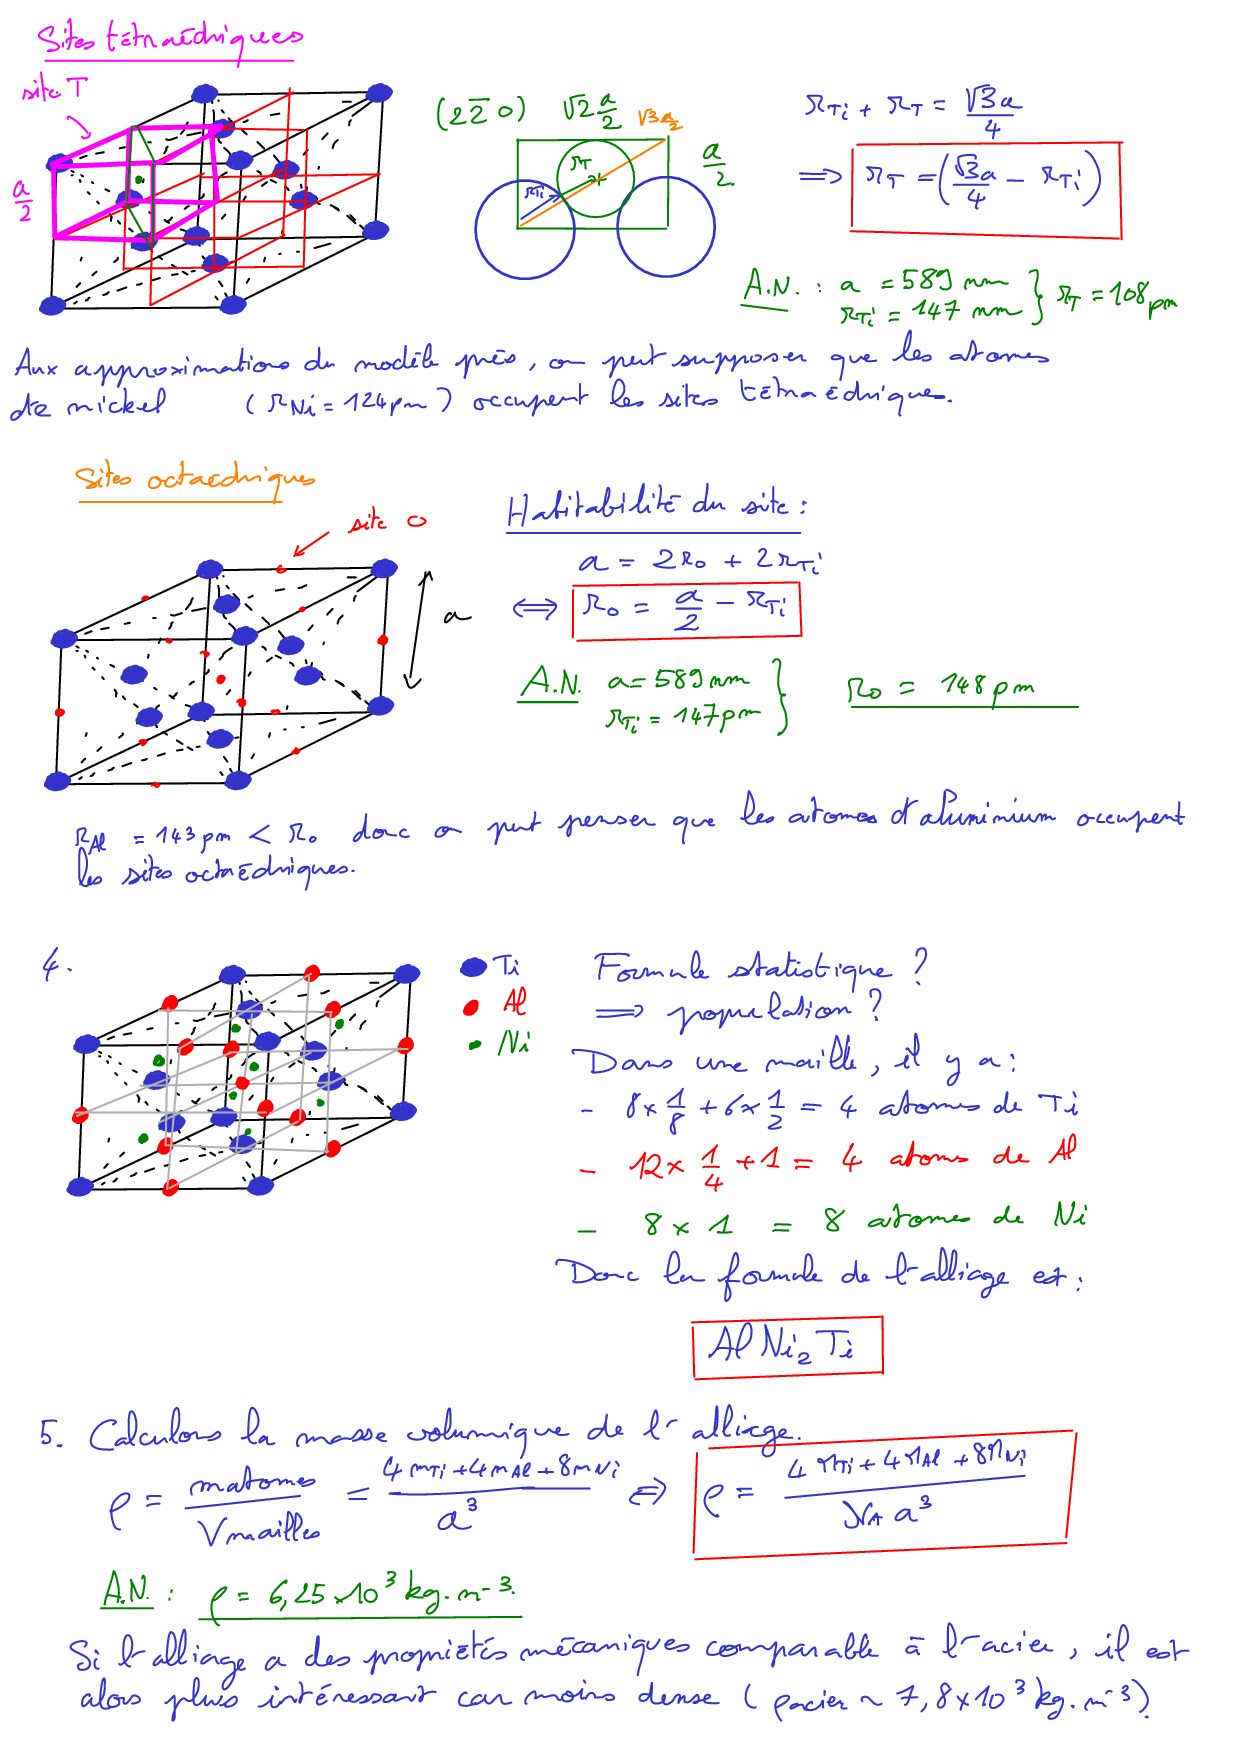 Sites tétraédriques
site T
a/2
(2 2̄ 0)
√2 a/2
√3 a/2
a/2
r_T
r_Ti
r_Ti + r_T = √3a/4
⟹ r_T = (√3a/4 − r_Ti)
A.N. : a = 589 nm
r_Ti = 147 nm } r_T = 108 pm
Aux approximations du modèle près, on peut supposer que les atomes
de nickel (r_Ni = 124 pm) occupent les sites tétraédriques.
Sites octaédriques
site O
a
Habitabilité du site :
a = 2r_o + 2r_Ti
⟺ r_o = a/2 − r_Ti
A.N. a = 589 nm
r_Ti = 147 pm } r_o = 148 pm
r_Al = 143 pm < r_o donc on peut penser que les atomes d'aluminium occupent
les sites octaédriques.
4.
Ti
Al
Ni
Formule statistique ?
⟹ population ?
Dans une maille, il y a :
- 8 × 1/8 + 6 × 1/2 = 4 atomes de Ti
- 12 × 1/4 + 1 = 4 atomes de Al
- 8 × 1 = 8 atomes de Ni
Donc la formule de l'alliage est :
Al Ni₂ Ti
5. Calculons la masse volumique de l'alliage.
ρ = matomes/Vmailles = (4m_Ti + 4m_Al + 8m_Ni)/a³ ⟺ ρ = (4M_Ti + 4M_Al + 8M_Ni)/(N_A a³)
A.N. : ρ = 6,25 × 10³ kg.m⁻³.
Si l'alliage a des propriétés mécaniques comparable à l'acier, il est
alors plus intéressant car moins dense (ρacier ~ 7,8×10³ kg.m⁻³).